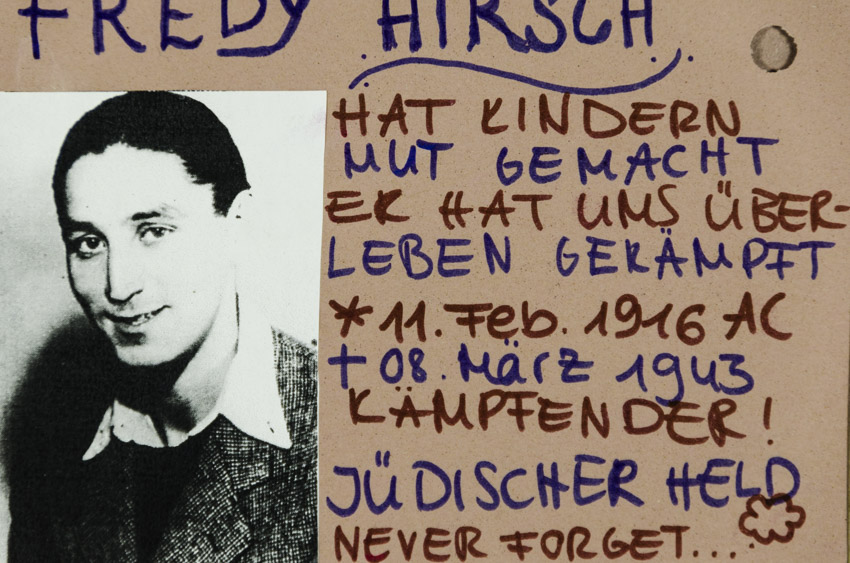 FREDY HIRSCH
HAT KINDERN
MUT GEMACHT
ER HAT UNS ÜBER-
LEBEN GEKÄMPFT
* 11. Feb. 1916 AC
† 08. März 1943
KÄMPFENDER!
JÜDISCHER HELD
NEVER FORGET...